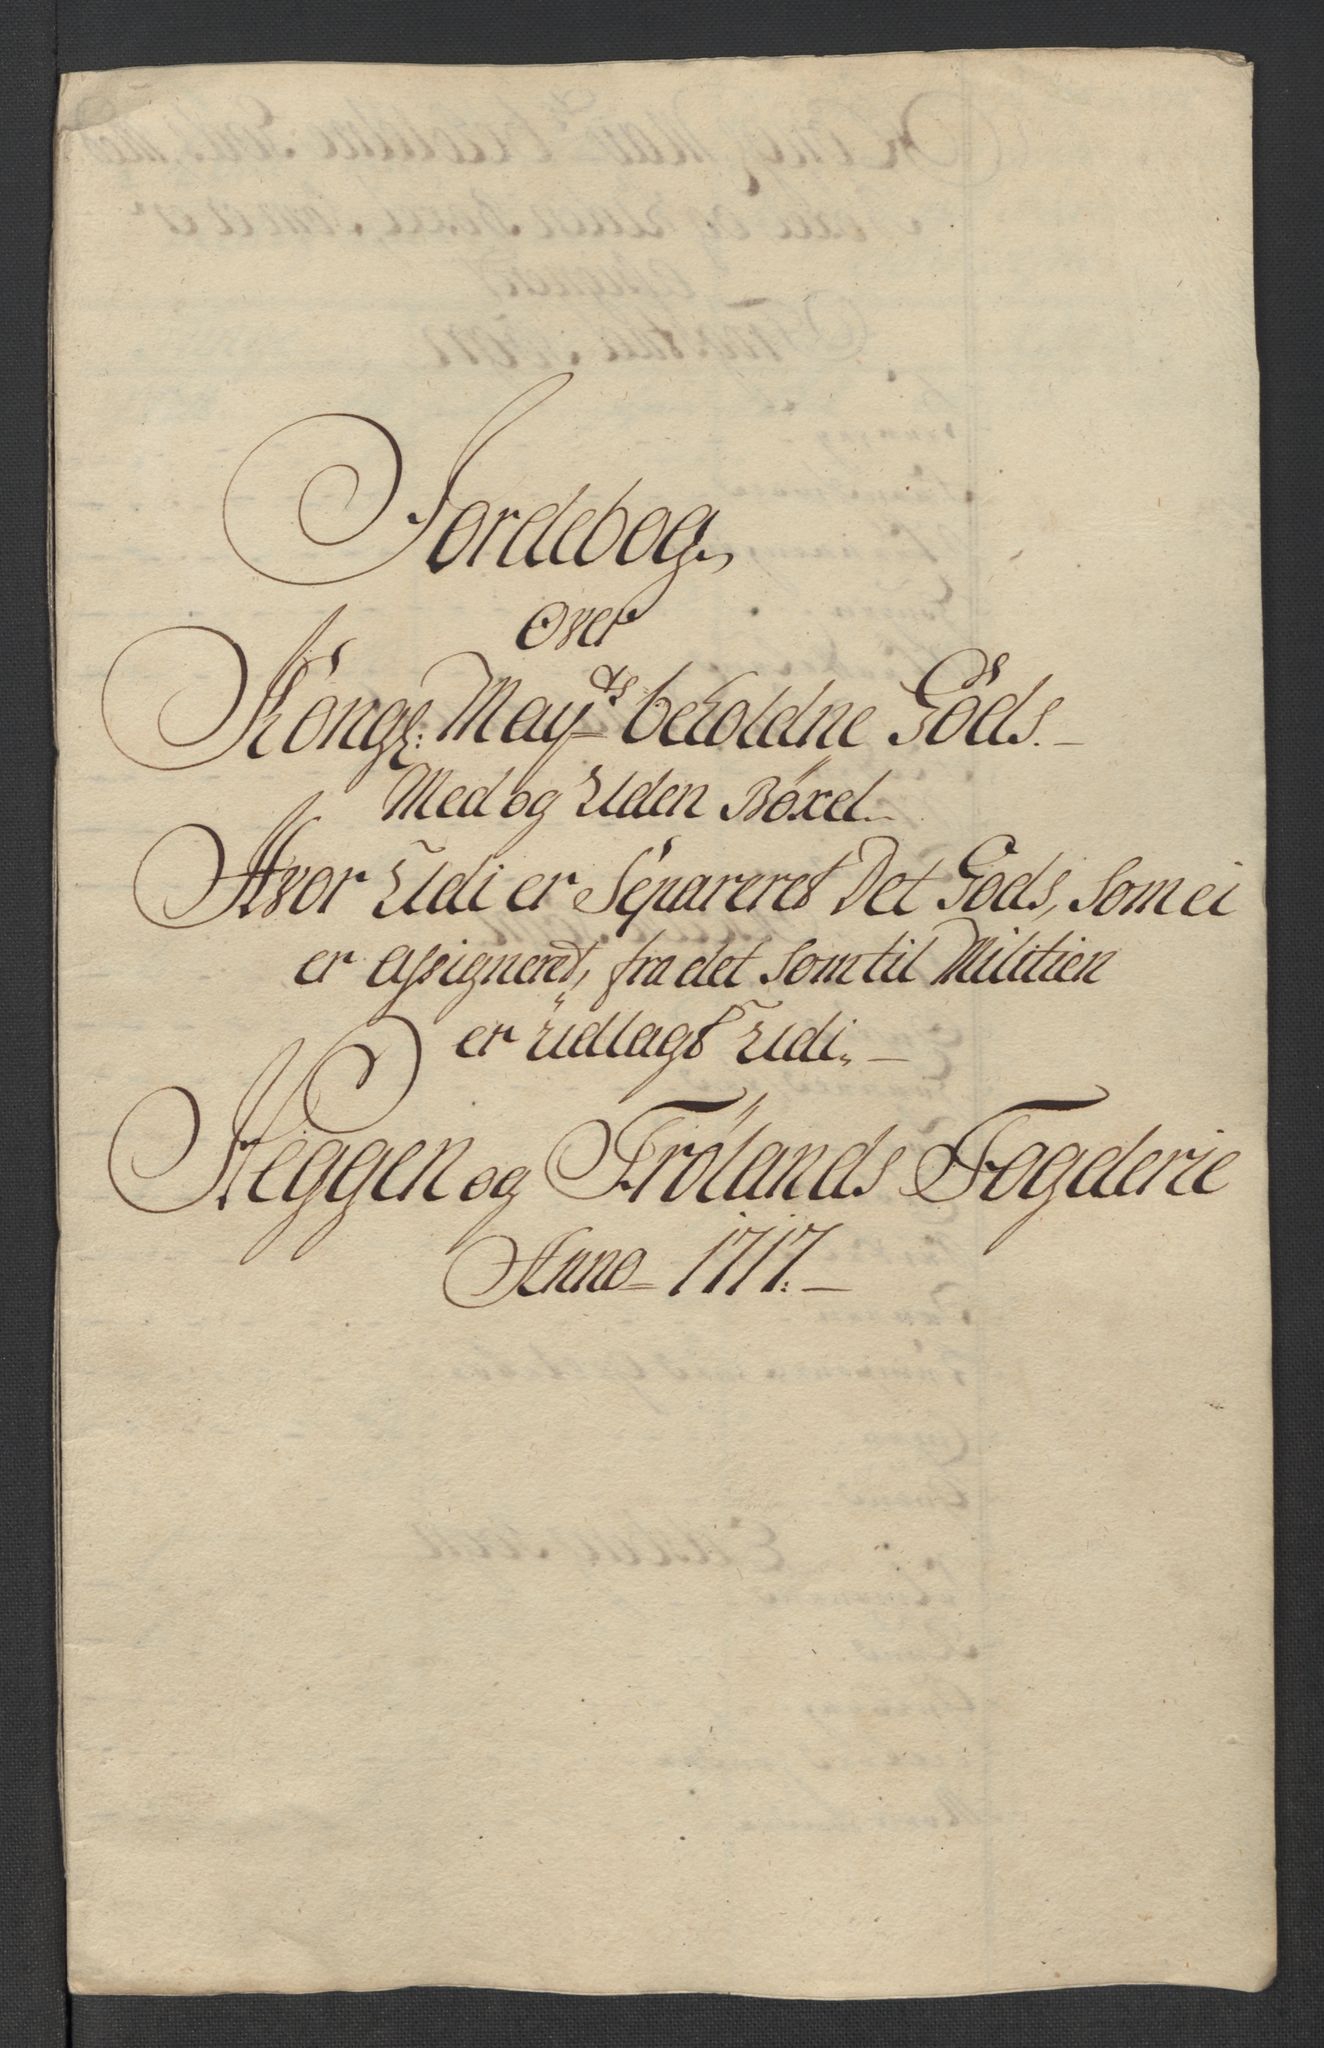 Jordebog
Over
Kongl: Mayts beholdne Gods.
Med og Uden Böxel
Hvor Udi er Separeret Det Gods, som ei
er assigneret, fra det som til Militien
er udlagt Udi
Heggen og Frölands Fogderie
Anno 1717.